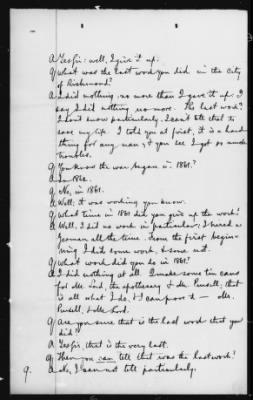 A Yes sir: well, I give it up.
Q What was the last work you did in the city
of Richmond?
A I did nothing no more than I gave it up. I
say I did nothing no more. The last work?
I don't know particularly, I can't tell that to
save my life. I told you at first, it is a hard
thing for any man; & you see I got so much
troubles.
Q You know the war began in 1861?
A In 1862.
Q No, in 1861.
A Well; it was working you know.
Q What time in 1861 did you give up the work?
A Well, I did no work in particular; I hired a
German all the time. From the first begin-
ning I did some work, & some not.
Q What work did you do in 1861?
A I did nothing at all. I make some tin cans
for Mr. the apothecary & Mr. Pursell; that
is all what I do, & I can prove it — Mr.
Pursell, & Mr.
Q Are you sure that is the last work that you
did?
A Yes sir, that is the very last.
Q Then you can tell that was the last work?
A No, I can not tell particularly.
9.